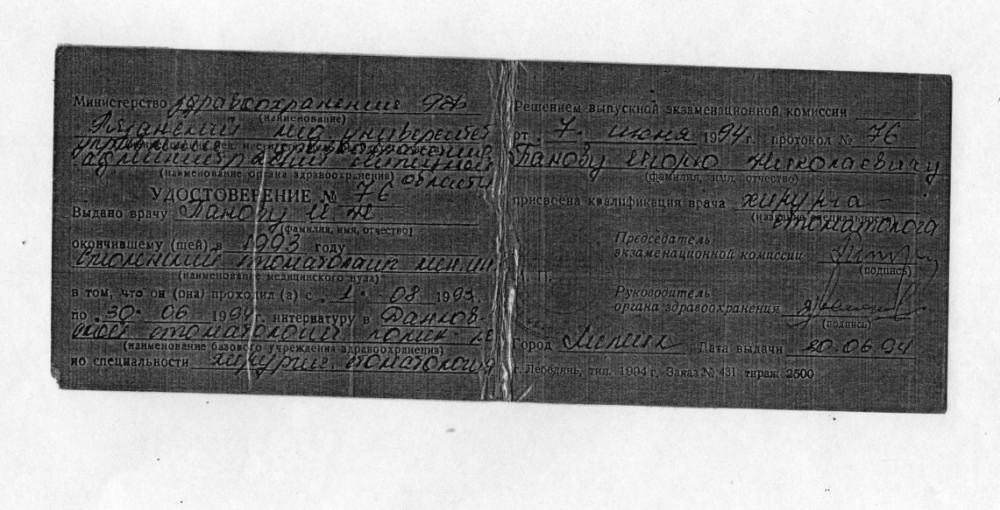 Министерство здравоохранения РФ
(наименование)
Рязанский мед. университет
управление здравоохранения
администрации Липецкой
(наименование органа здравоохранения) области
УДОСТОВЕРЕНИЕ № 76
Выдано врачу Панову И Н
(фамилия, имя, отчество)
окончившему (шей) в 1993 году
стоматолог
(наименование медицинского вуза)
в том, что он (она) проходил (а) с 1. 08 1993.
по 30. 06 1994г. интернатуру в Данков-
ской стоматологич полик-ке
(наименование базового учреждения здравоохранения)
по специальности хирургич. стоматология
Решением выпускной экзаменационной комиссии
от 7. июня 1994 г. протокол № 76
Панову Игорю Николаевичу
(фамилия, имя, отчество)
присвоена квалификация врача хирурга-
(название специальности)
стоматолога
Председатель
экзаменационной комиссии
(подпись)
М. П.
Руководитель
органа здравоохранения
(подпись)
Город Липецк Дата выдачи 20.06.94
г. Лебедянь, тип. 1994 г. Заказ № 431 тираж 2500